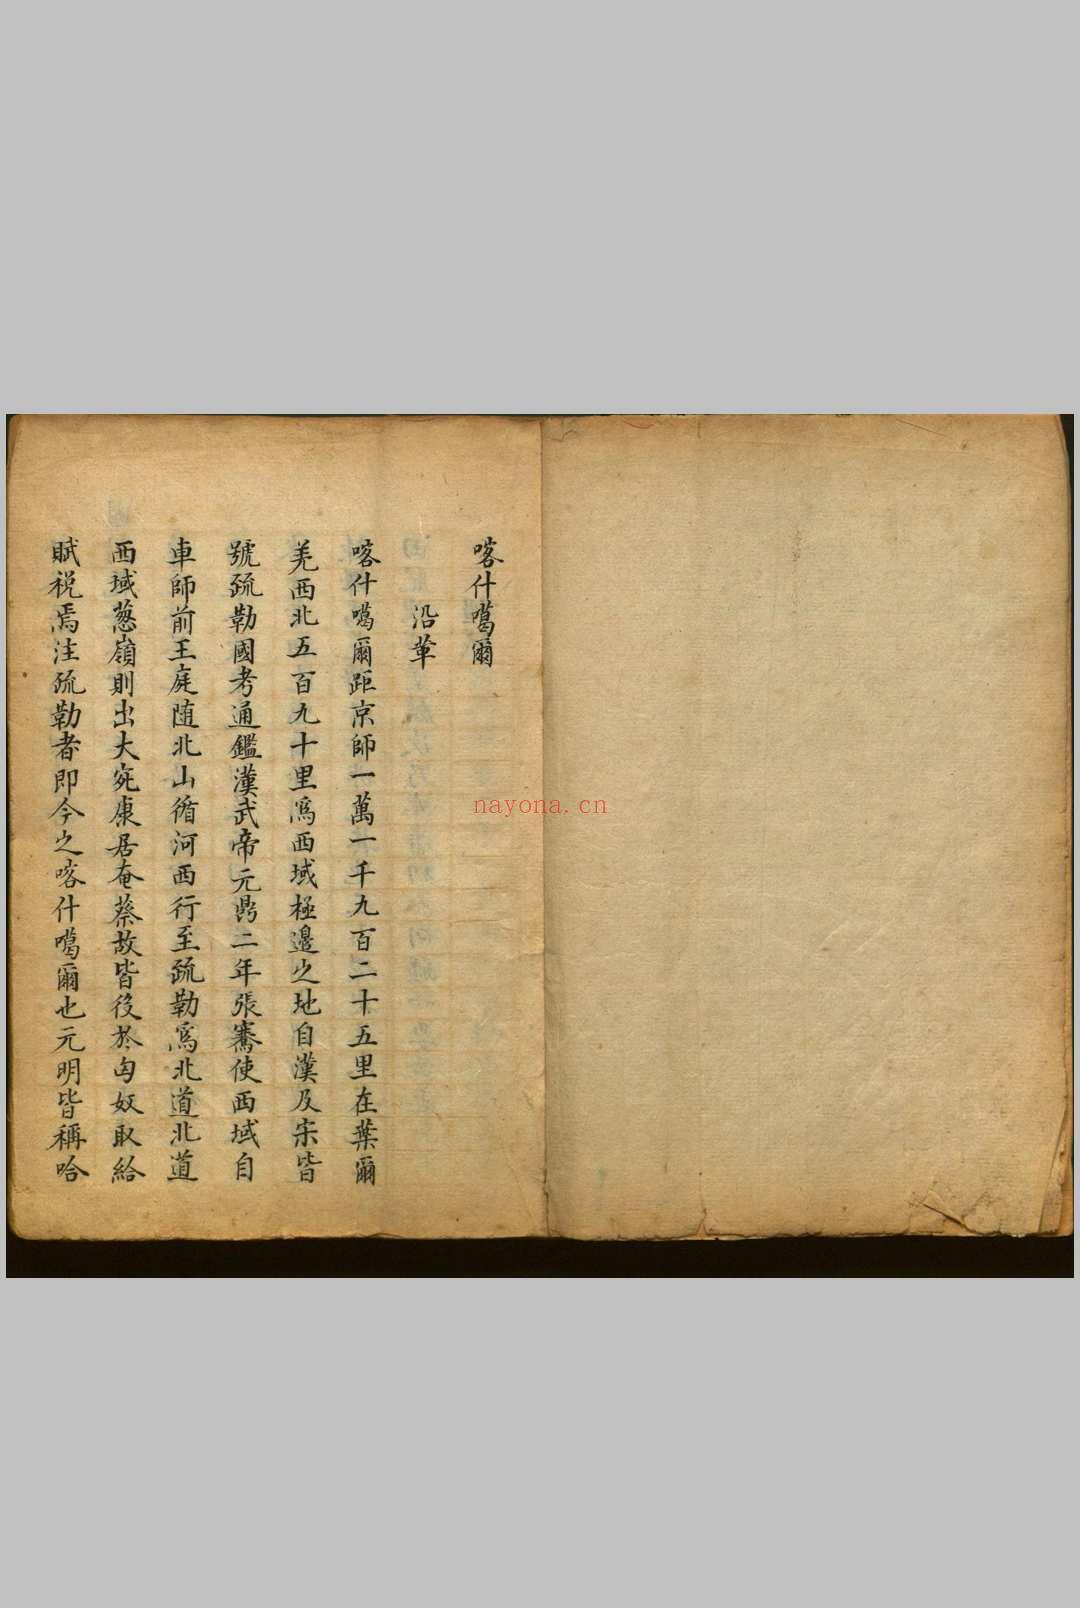 喀什噶爾
沿革
喀什噶爾距京師一萬一千九百二十五里在葉爾
羌西北五百九十里爲西域極邊之地自漢及宋皆
號疏勒國考通鑑漢武帝元鼎二年張騫使西域自
車師前王庭随北山循河西行至疏勒爲北道北道
西域葱嶺則出大宛康居奄蔡故皆役於匈奴取給
賦税焉注疏勒者即今之喀什噶爾也元明皆稱哈
nayona.cn